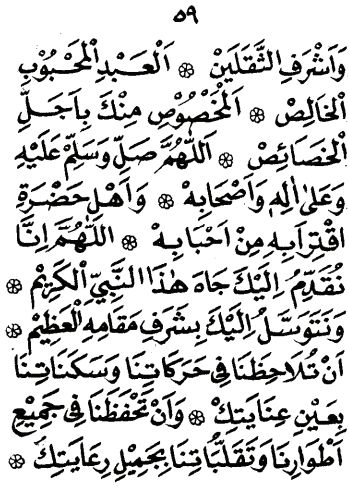 ٥٩
وَاَشْرَفِ الثَّقَلَيْنِ ۞ اَلْعَبْدِ الْمَحْبُوْبِ
الْخَالِصْ ۞ اَلْمَخْصُوْصِ مِنْكَ بِاَجَلِّ
الْخَصَائِصْ ۞ اَللّٰهُمَّ صَلِّ وَسَلِّمْ عَلَيْهِ
وَعَلٰى اٰلِهِ وَاَصْحَابِهْ ۞ وَاَهْلِ حَضْرَةِ
اقْتِرَابِهِ مِنْ اَحْبَابِهْ ۞ اَللّٰهُمَّ اِنَّا
نُقَدِّمُ اِلَيْكَ جَاهَ هٰذَا النَّبِيِّ الْكَرِيْمْ ۞
وَنَتَوَسَّلُ اِلَيْكَ بِشَرَفِ مَقَامِهِ الْعَظِيْمْ ۞
اَنْ تُلَاحِظَنَا فِى حَرَكَاتِنَا وَسَكَنَاتِنَا
بِعَيْنِ عِنَايَتِكْ ۞ وَاَنْ تَحْفَظَنَا فِى جَمِيْعِ
اَطْوَارِنَا وَتَقَلُّبَاتِنَا بِجَمِيْلِ رِعَايَتِكْ ۞